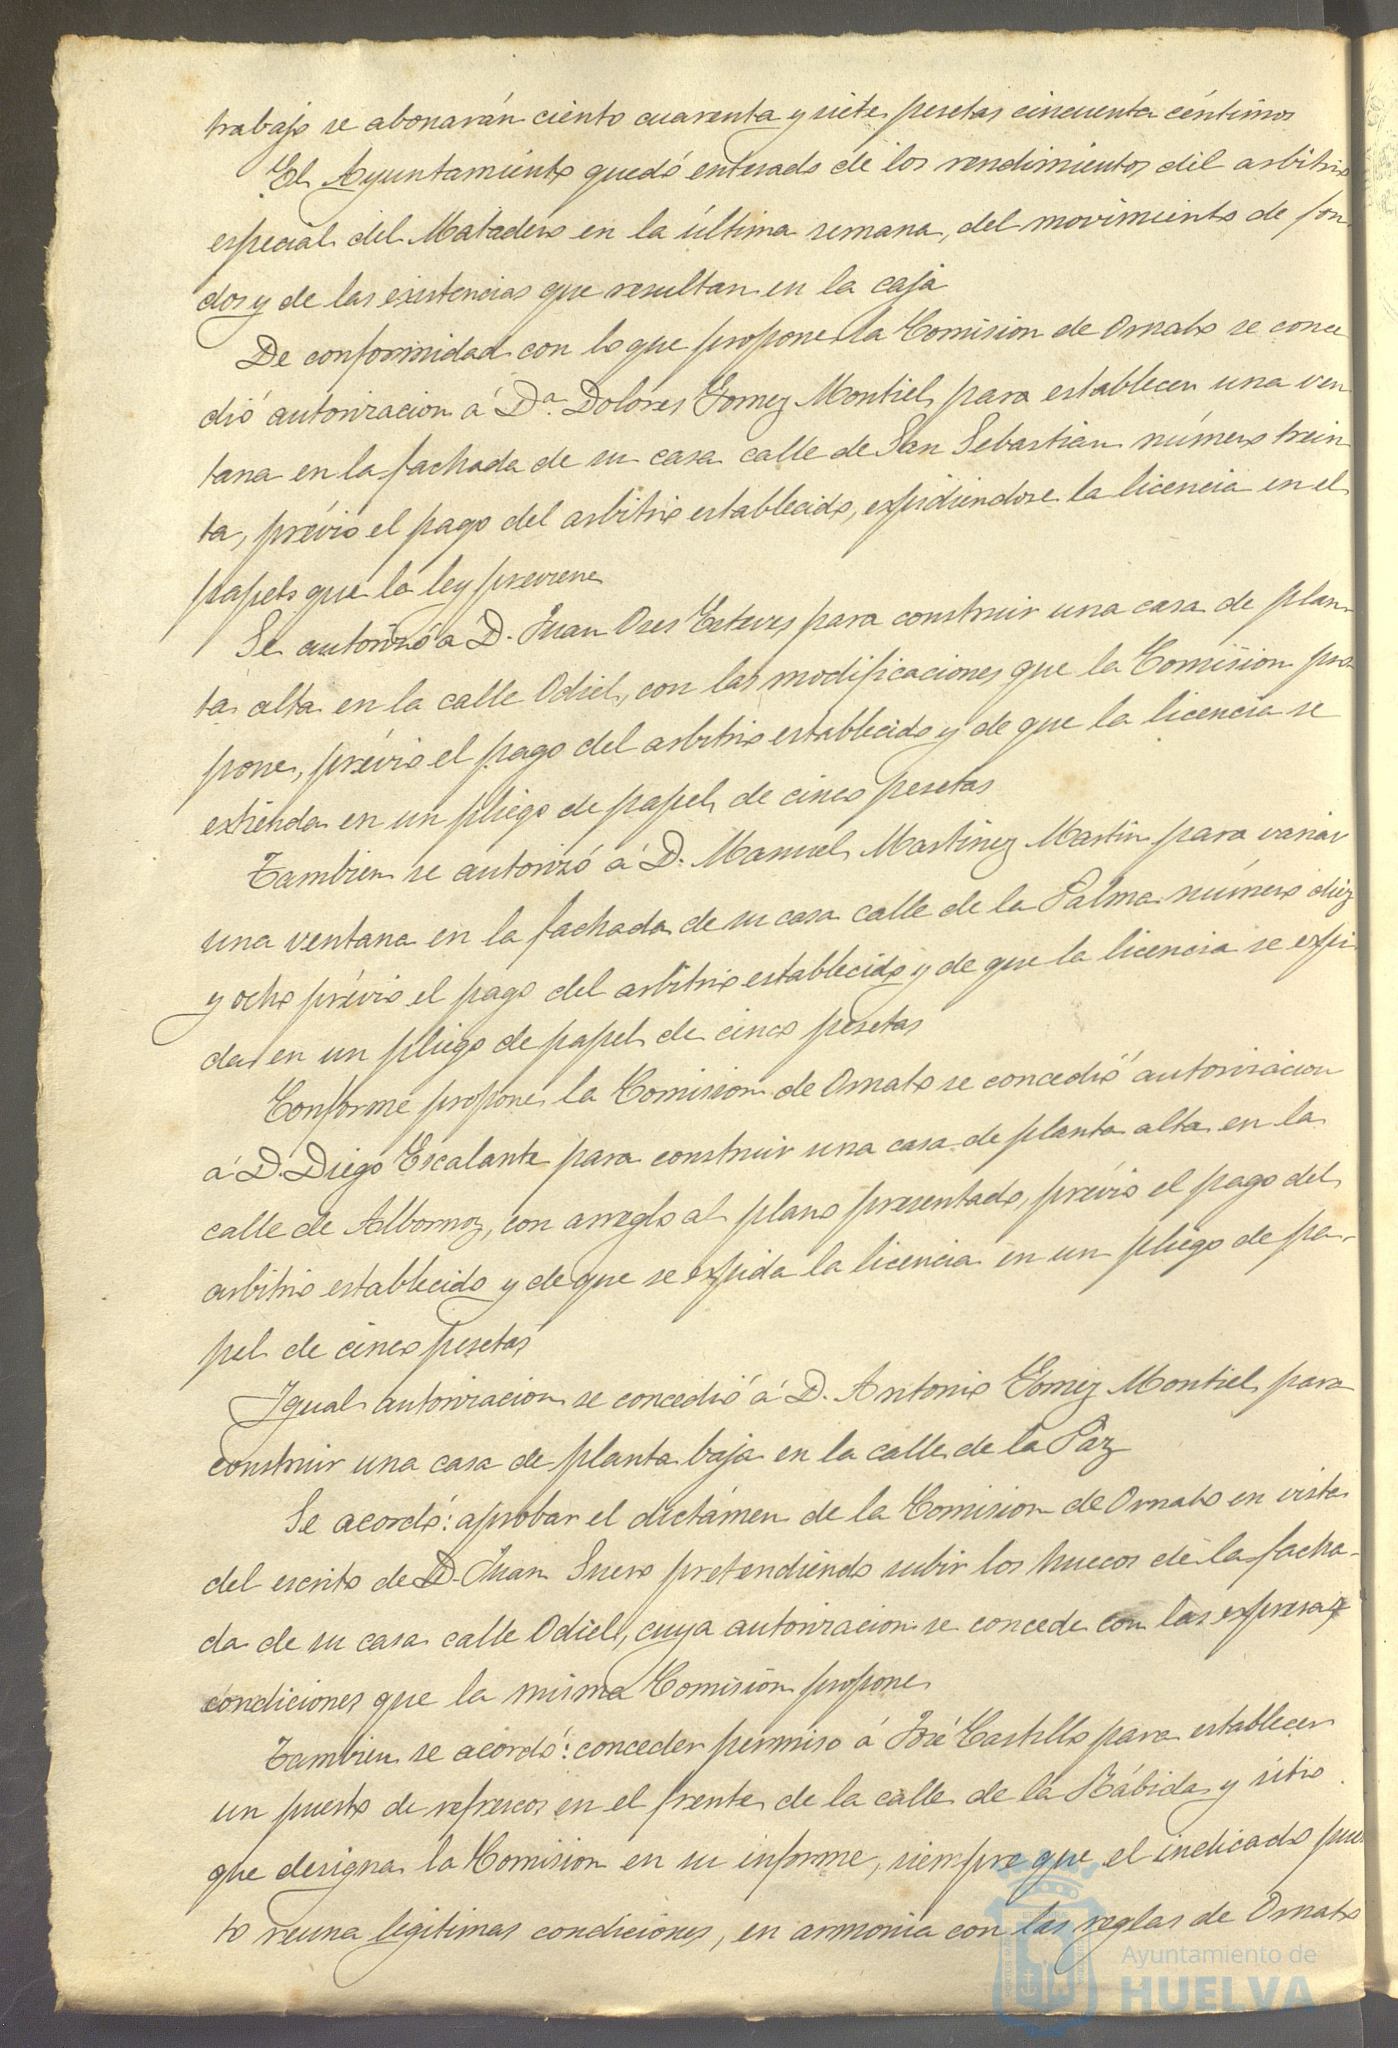 trabajo se abonarán ciento cuarenta y siete pesetas cincuenta céntimos
El Ayuntamiento quedó enterado de los rendimientos del arbitrio
especial del Matadero en la última semana, del movimiento de fon-
dos y de las existencias que resultan en la caja
De conformidad con lo que propone la Comision de Ornato se conce
dió autorizacion á Dª. Dolores Gomez Montiel para establecer una ven
tana en la fachada de su casa calle de San Sebastian número trein
ta, prévio el pago del arbitrio establecido, expidiendose la licencia en el
papel que la ley previene
Se autorizó a D. Juan Oses para construir una casa de plan-
ta alta en la calle Odiel, con las modificaciones que la Comision pro
pone, prévio el pago del arbitrio establecido y de que la licencia se
extienda en un pliego de papel de cinco pesetas
Tambien se autorizó á D. Manuel Martinez Martin para variar
una ventana en la fachada de su casa calle de la Palma número diez
y ocho prévio el pago del arbitrio establecido y de que la licencia se expi
da en un pliego de papel de cinco pesetas
Conforme propone la Comision de Ornato se concedió autorizacion
á D. Diego Escalante para construir una casa de planta alta en la
calle de Albornoz, con arreglo al plano presentado, prévio el pago del
arbitrio establecido y de que se expida la licencia en un pliego de pa-
pel de cinco pesetas
Igual autorizacion se concedió á D. Antonio Gomez Montiel para
construir una casa de planta baja en la calle de la Paz
Se acordó: aprobar el dictámen de la Comision de Ornato en vista
del escrito de D. Juan Suero pretendiendo subir los huecos de la facha-
da de su casa calle Odiel, cuya autorizacion se concede con las
condiciones que la misma Comision propone
Tambien se acordó: conceder permiso á José Castillo para establecer
un puesto de refrescos en el frente de la calle de la Rábida y sitio
que designa la Comision en su informe, siempre que el indicado pues
to reuna legitimas condiciones, en armonia con las reglas de Ornato
Ayuntamiento de
HUELVA